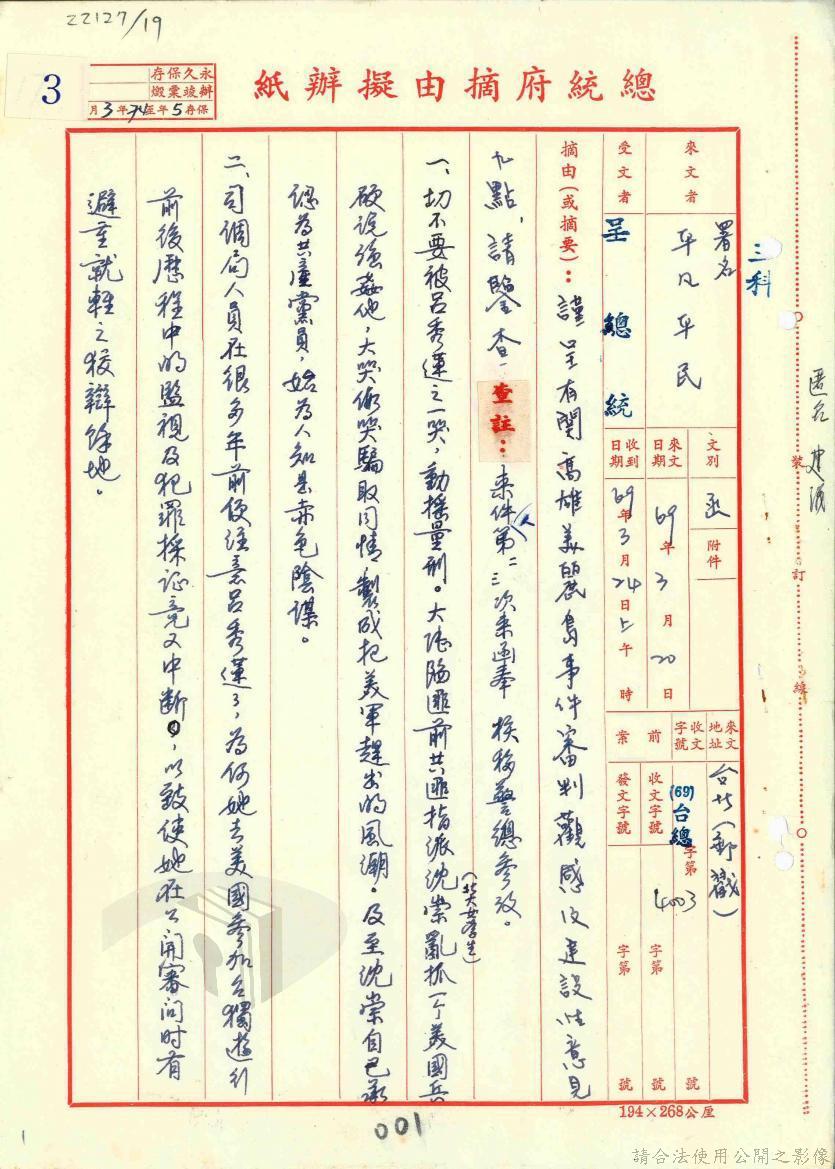 22127/19
3
永久保存
辦竣稾燬
保存5年至74年3月
總統府摘由擬辦紙
三科
匿名 建議
裝
訂
線
來文者
署名
平凡平民
受文者
呈總統
文別
函
附件
來文日期
69年3月20日
收到日期
69年3月24日上午 時
來文地址
台北(郵戳)
收文字號
(69)台總字第4003號
前案
收文字號
字第 號
發文字號
字第 號
摘由(或摘要):謹呈有關高雄美麗島事件審判觀感及建設性意見
九點,請鑒查。
查註:來件(人)第二三次來函奉 核移警總參攷。
一、切不要被呂秀蓮之一哭,動搖量刑。大陸陷匪前共匪指派沈崇(北大女學生)亂抓一个美國兵
硬說強姦他,大哭假哭騙取同情製成把美軍趕出的風潮。及至沈崇自己承
認為共產黨員,始為人知是赤色陰謀。
二、司調局人員在很多年前便注意呂秀蓮了,為何她去美國參加台獨遊行
前後歷程中的監視及犯罪採証竟又中斷,以致使她在公開審問時有
避重就輕之狡辯餘地。
194×268公厘
001
請合法使用公開之影像